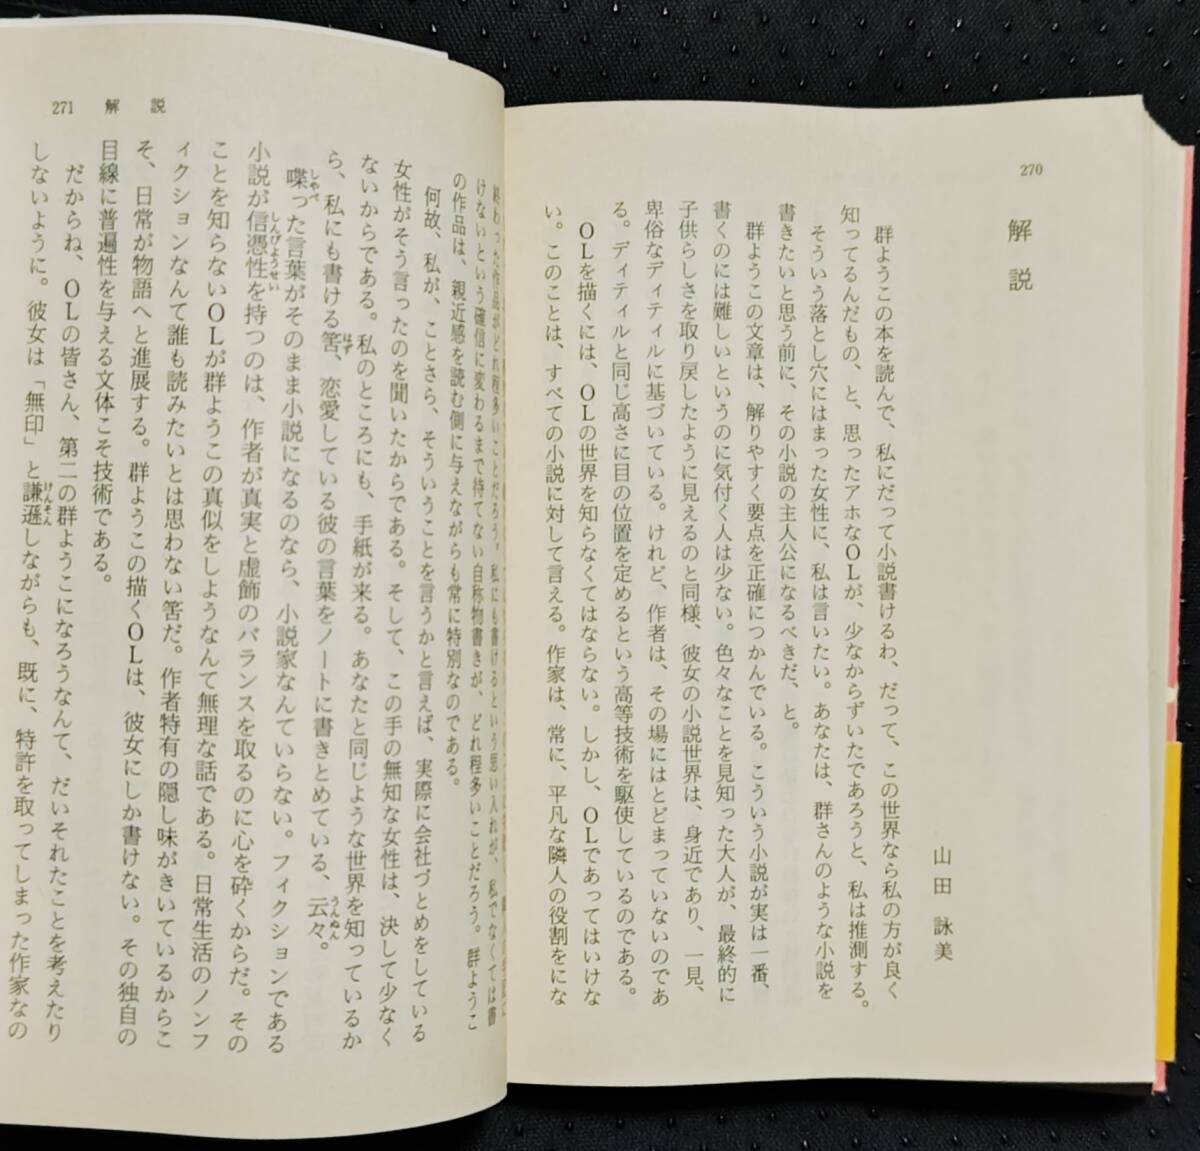 270
解説
山田詠美
群ようこの本を読んで、私にだって小説書けるわ、だって、この世界なら私の方が良く
知ってるんだもの、と、思ったアホなOLが、少なからずいたであろうと、私は推測する。
そういう落とし穴にはまった女性に、私は言いたい。あなたは、群さんのような小説を
書きたいと思う前に、その小説の主人公になるべきだ、と。
群ようこの文章は、解りやすく要点を正確につかんでいる。こういう小説が実は一番、
書くのには難しいというのに気付く人は少ない。色々なことを見知った大人が、最終的に
子供らしさを取り戻したように見えるのと同様、彼女の小説世界は、身近であり、一見、
卑俗なディテイルに基づいている。けれど、作者は、その場にはとどまっていないのであ
る。ディテイルと同じ高さに目の位置を定めるという高等技術を駆使しているのである。
OLを描くには、OLの世界を知らなくてはならない。しかし、OLであってはいけな
い。このことは、すべての小説に対して言える。作家は、常に、平凡な隣人の役割をにな
271 解説
終わった作品がどれ程多いことだろう。私にも書けるという思い入れが、私でなくては書
けないという確信に変わるまで待てない自称物書きが、どれ程多いことだろう。群ようこ
の作品は、親近感を読む側に与えながらも常に特別なのである。
何故、私が、ことさら、そういうことを言うかと言えば、実際に会社づとめをしている
女性がそう言ったのを聞いたからである。そして、この手の無知な女性は、決して少なく
ないからである。私のところにも、手紙が来る。あなたと同じような世界を知っているか
ら、私にも書ける筈、恋愛している彼の言葉をノートに書きとめている、云々。
喋った言葉がそのまま小説になるのなら、小説家なんていらない。フィクションである
小説が信憑性を持つのは、作者が真実と虚飾のバランスを取るのに心を砕くからだ。その
ことを知らないOLが群ようこの真似をしようなんて無理な話である。日常生活のノンフ
ィクションなんて誰も読みたいとは思わない筈だ。作者特有の隠し味がきいているからこ
そ、日常が物語へと進展する。群ようこの描くOLは、彼女にしか書けない。その独自の
目線に普遍性を与える文体こそ技術である。
だからね、OLの皆さん、第二の群ようこになろうなんて、だいそれたことを考えたり
しないように。彼女は「無印」と謙遜しながらも、既に、特許を取ってしまった作家なの